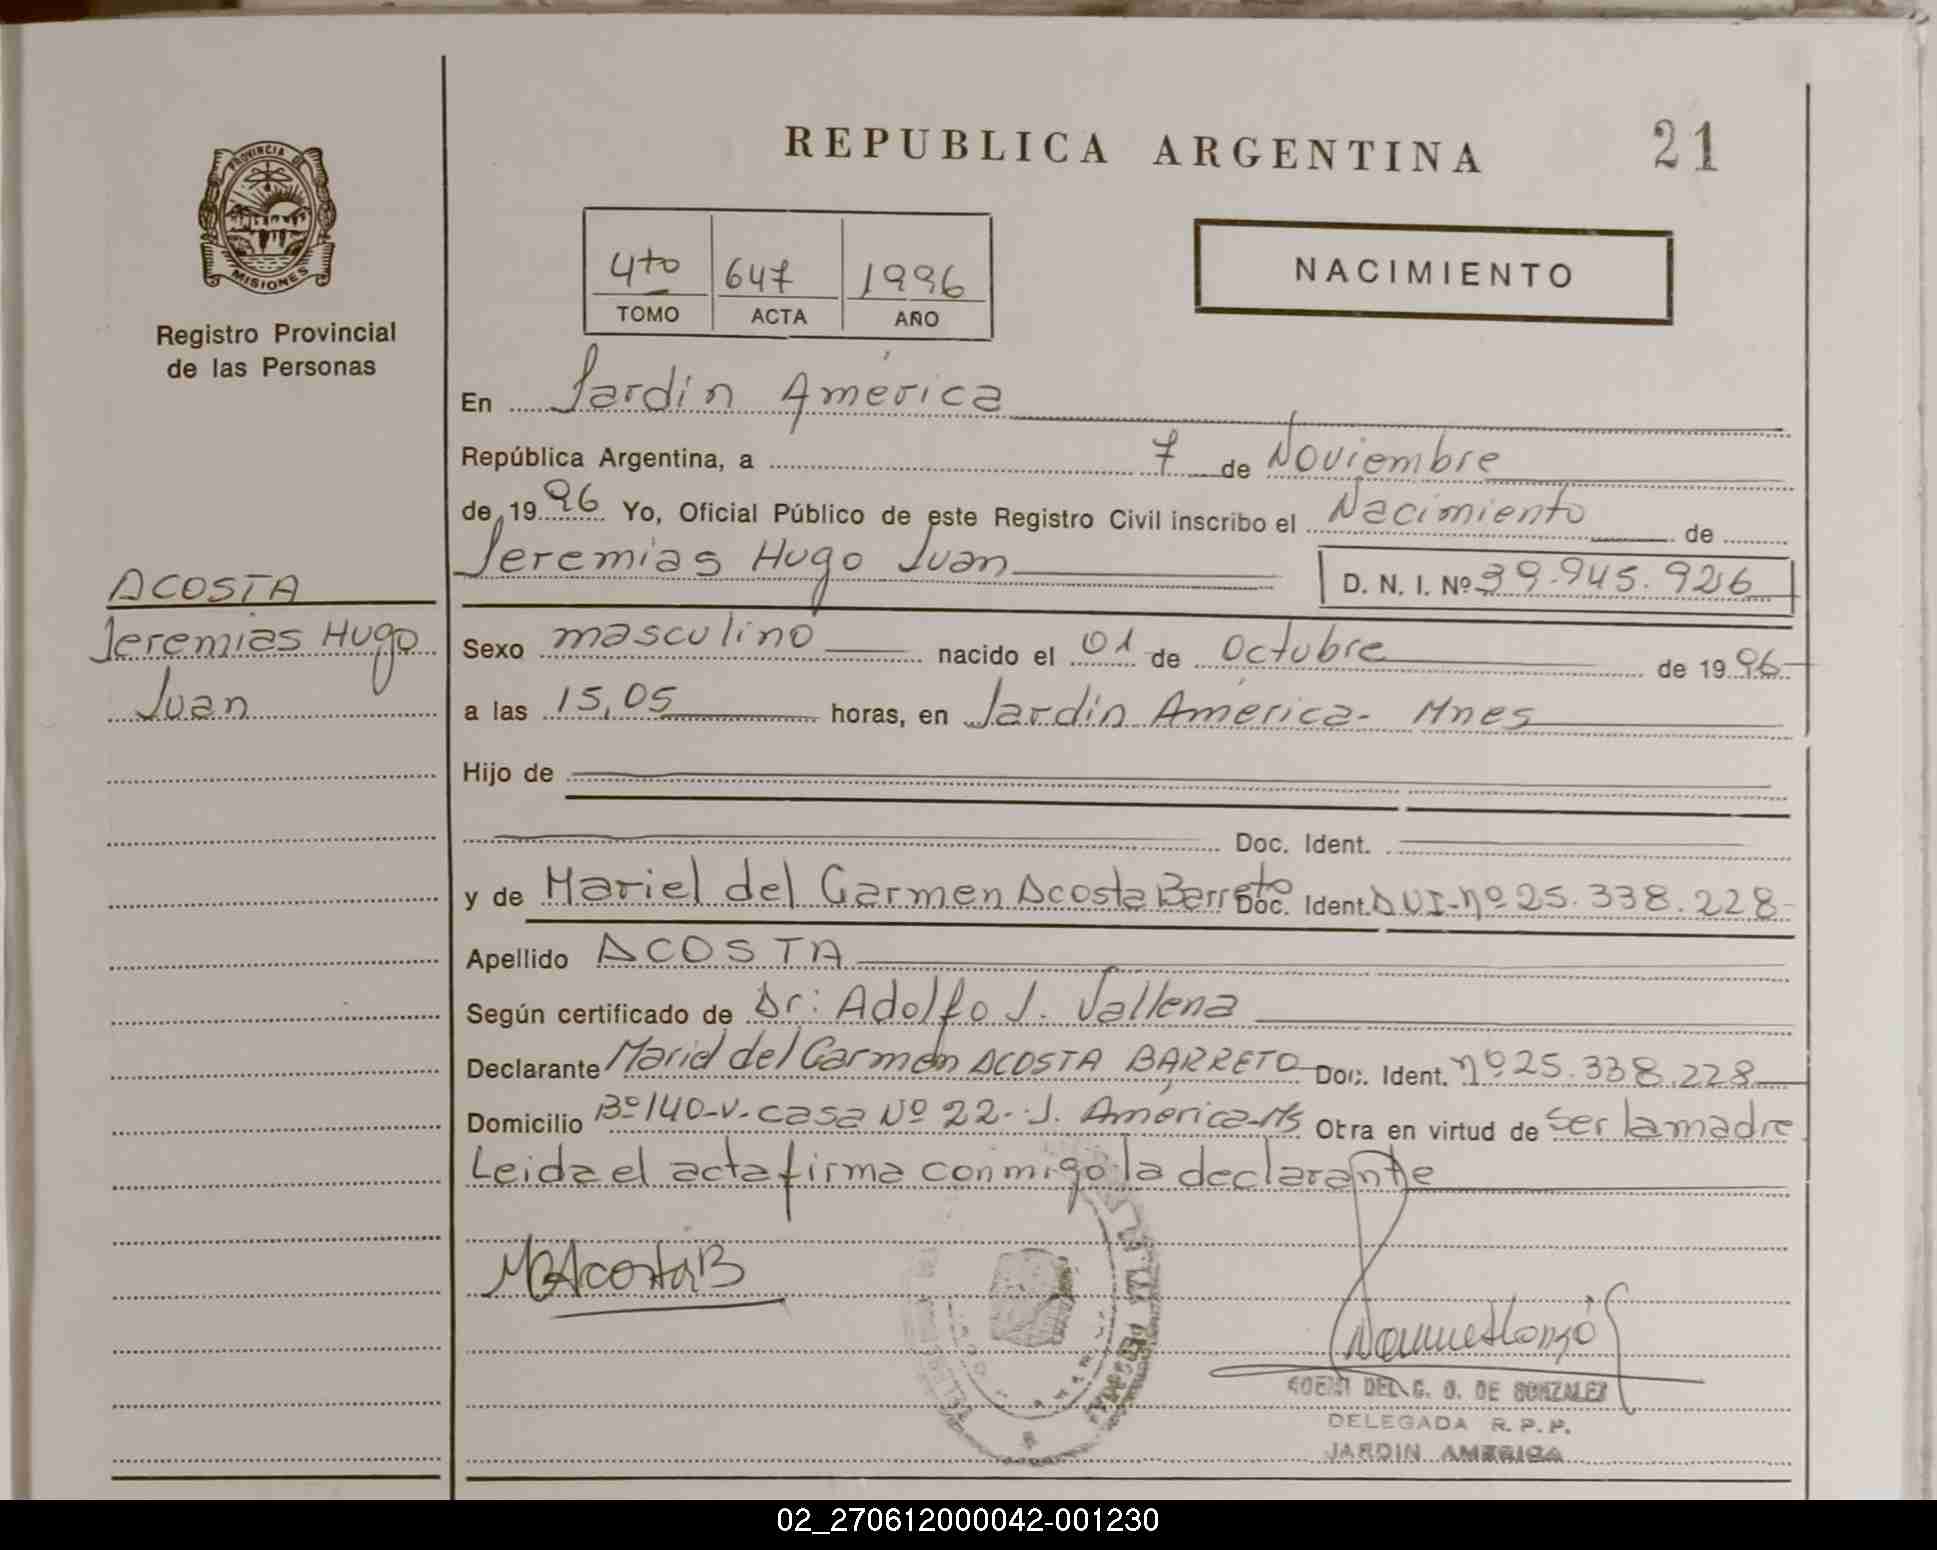 REPUBLICA ARGENTINA
21
PROVINCIA DE
MISIONES
Registro Provincial
de las Personas
4to 647 1996
TOMO ACTA AÑO
NACIMIENTO
En Jardín América
República Argentina, a 7 de Noviembre
de 1996 Yo, Oficial Público de este Registro Civil inscribo el Nacimiento de
Jeremias Hugo Juan D. N. I. Nº 39.945.926
ACOSTA
Jeremias Hugo
Juan
Sexo masculino nacido el 01 de Octubre de 1996
a las 15,05 horas, en Jardín América- Mnes
Hijo de
Doc. Ident.
y de Mariel del Carmen Acosta Barreto Doc. Ident. DNI-nº 25.338.228-
Apellido ACOSTA
Según certificado de Dr: Adolfo J. Vallena
Declarante Mariel del Carmen ACOSTA BARRETO Doc. Ident. nº 25.338.228
Domicilio Bº 140-V- casa Nº 22- J. América-Ms Obra en virtud de ser la madre
Leida el acta firma conmigo la declarante
DEL C. O. DE GONZALEZ
DELEGADA R. P. P.
JARDIN AMERICA
02_270612000042-001230